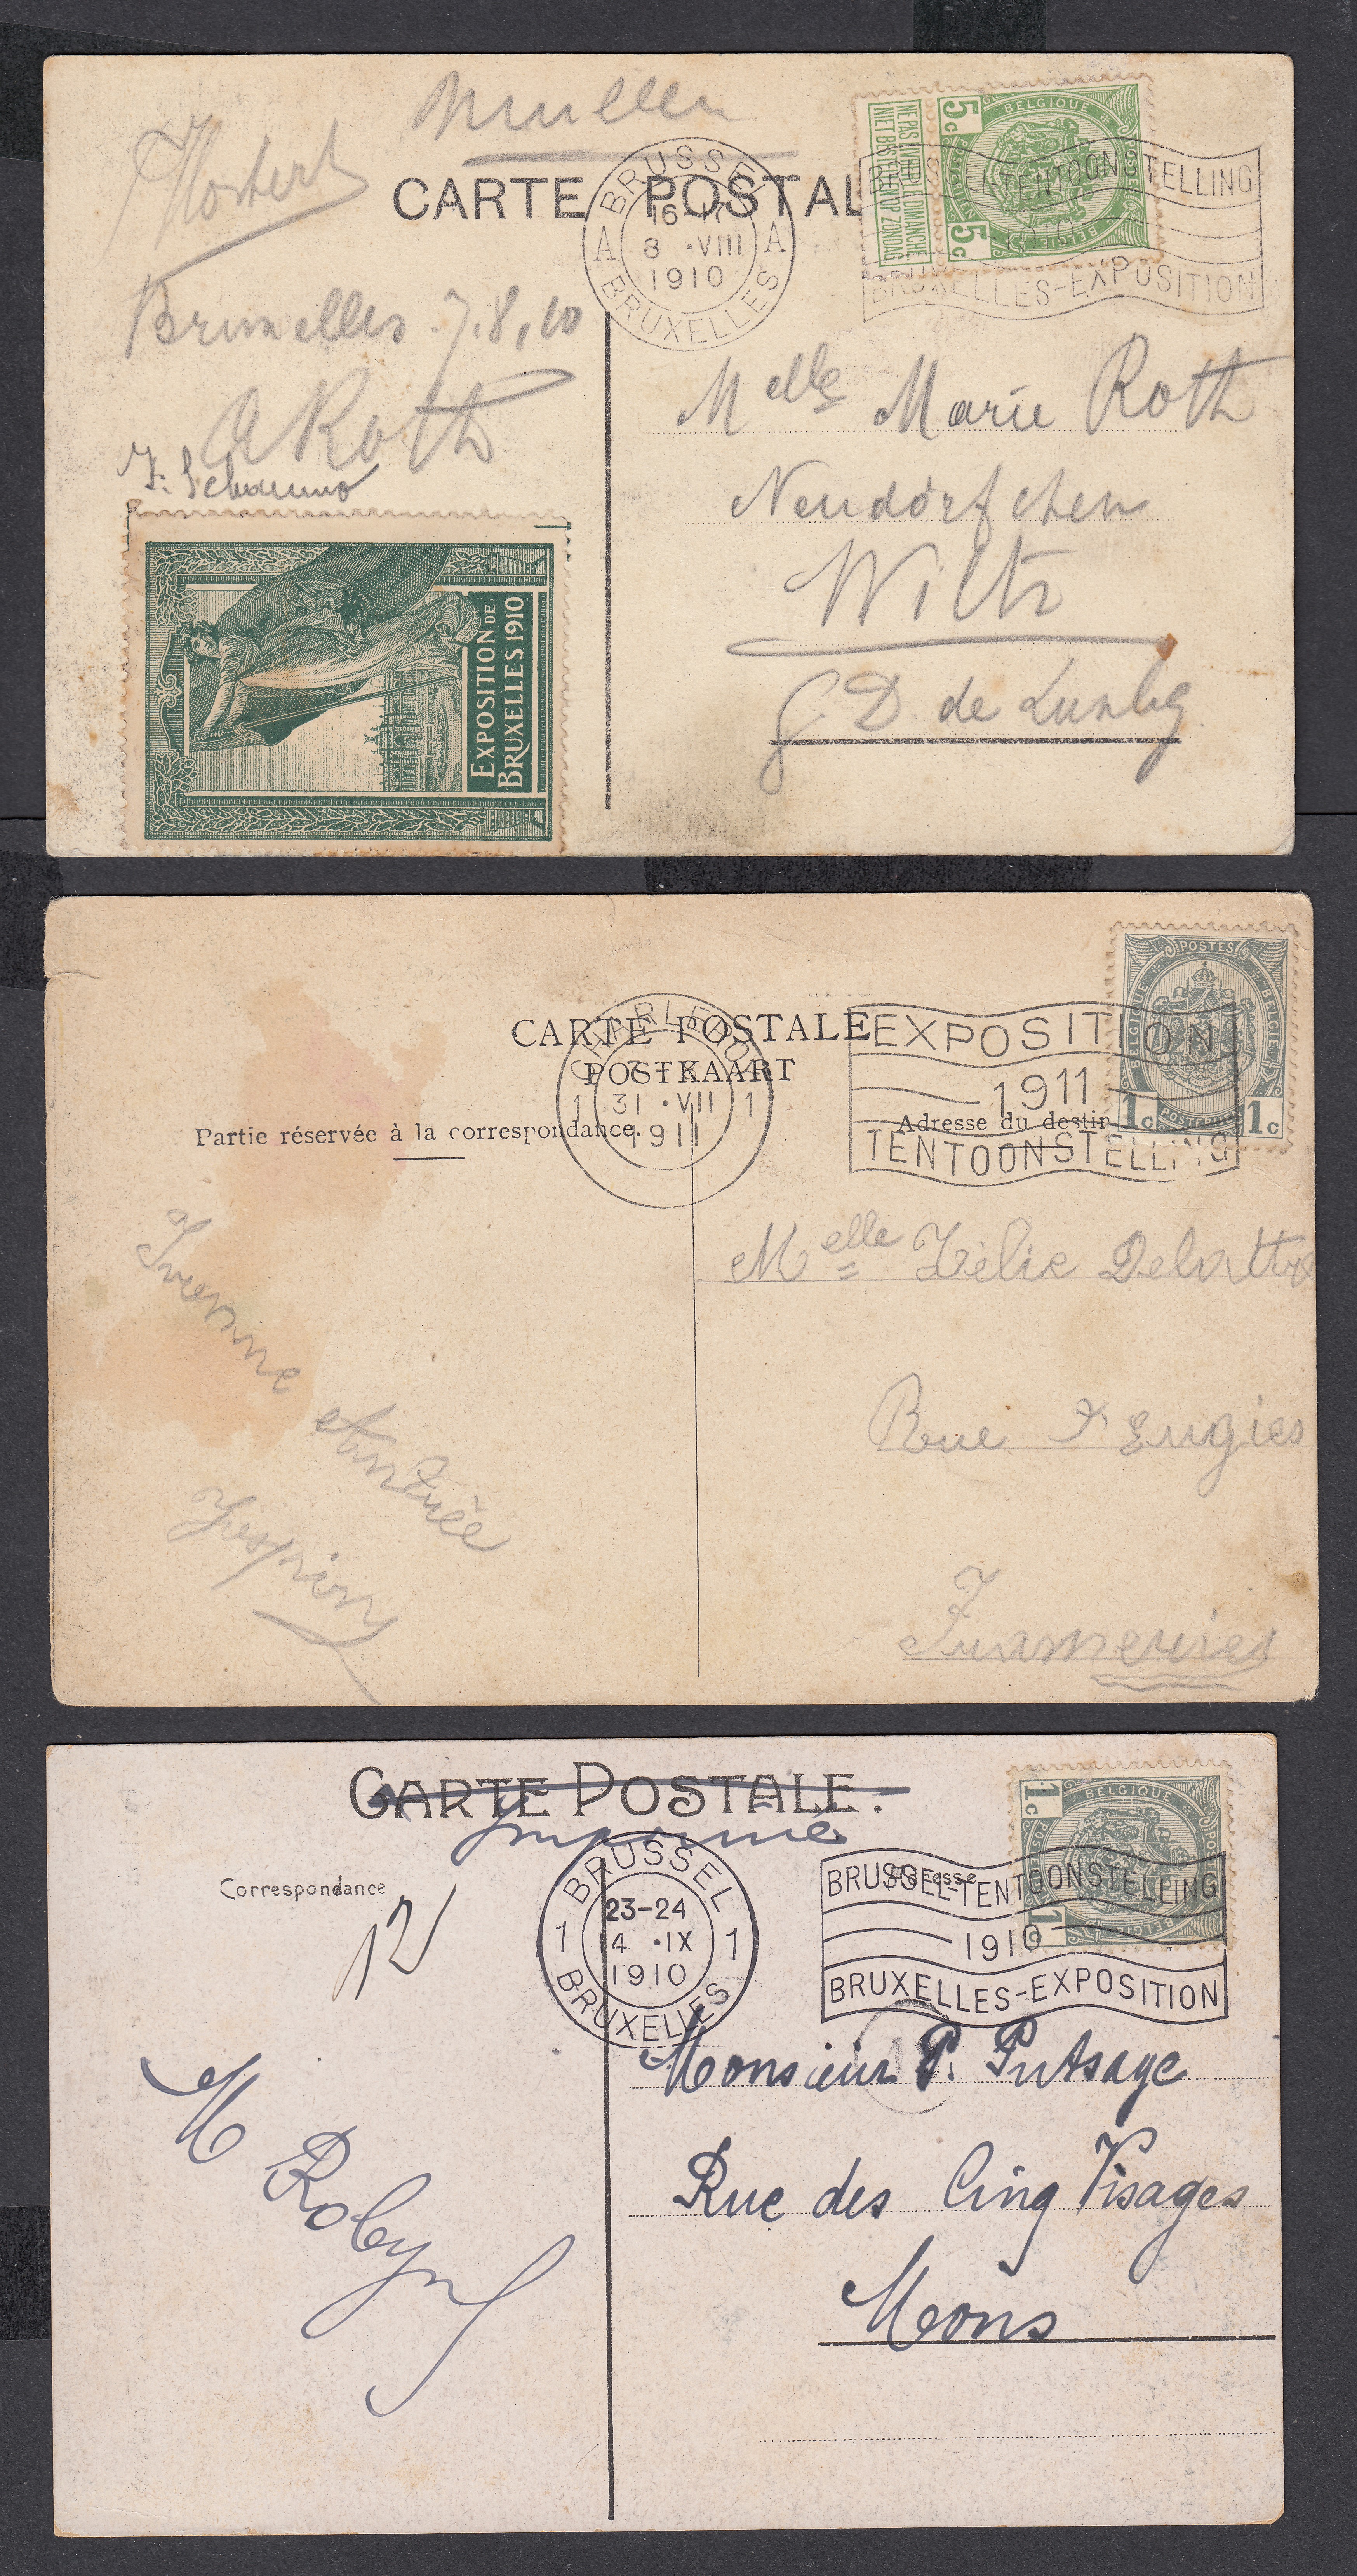 Muller
Hostert
CARTE POSTAL
BRUSSEL
16-17
A 8 ·VIII A
1910
BRUXELLES
5c BELGIQUE
POSTES
5c BELGIE
NE PAS LIVRER LE DIMANCHE
NIET BESTELLEN OP ZONDAG
TENTOONSTELLING
1910
BRUXELLES-EXPOSITION
Bruxelles 7.8.10
A Roth
EXPOSITION DE
BRUXELLES 1910
Melle Marie Roth
Neudörfchen
Wiltz
G. D de Luxbg
CARTE POSTALE
POSTKAART
Partie réservée à la correspondance.
Adresse du destin
CHARLEROI
1 31 ·VII 1
1911
EXPOSITION
1911
TENTOONSTELLING
POSTES
BELGIQUE BELGIE
1c POSTERIJEN 1c
Melle Zélie Delattre
Rue d'Eugies
Frameries
CARTE POSTALE.
Imprimé
Correspondance
Adresse
12
BRUSSEL
23-24
1 4 ·IX 1
1910
BRUXELLES
1c BELGIQUE
POSTES
1c BELGIE
BRUSSEL-TENTOONSTELLING
1910
BRUXELLES-EXPOSITION
M Robyns
Monsieur P. Putsage
Rue des Cinq Visages
Mons